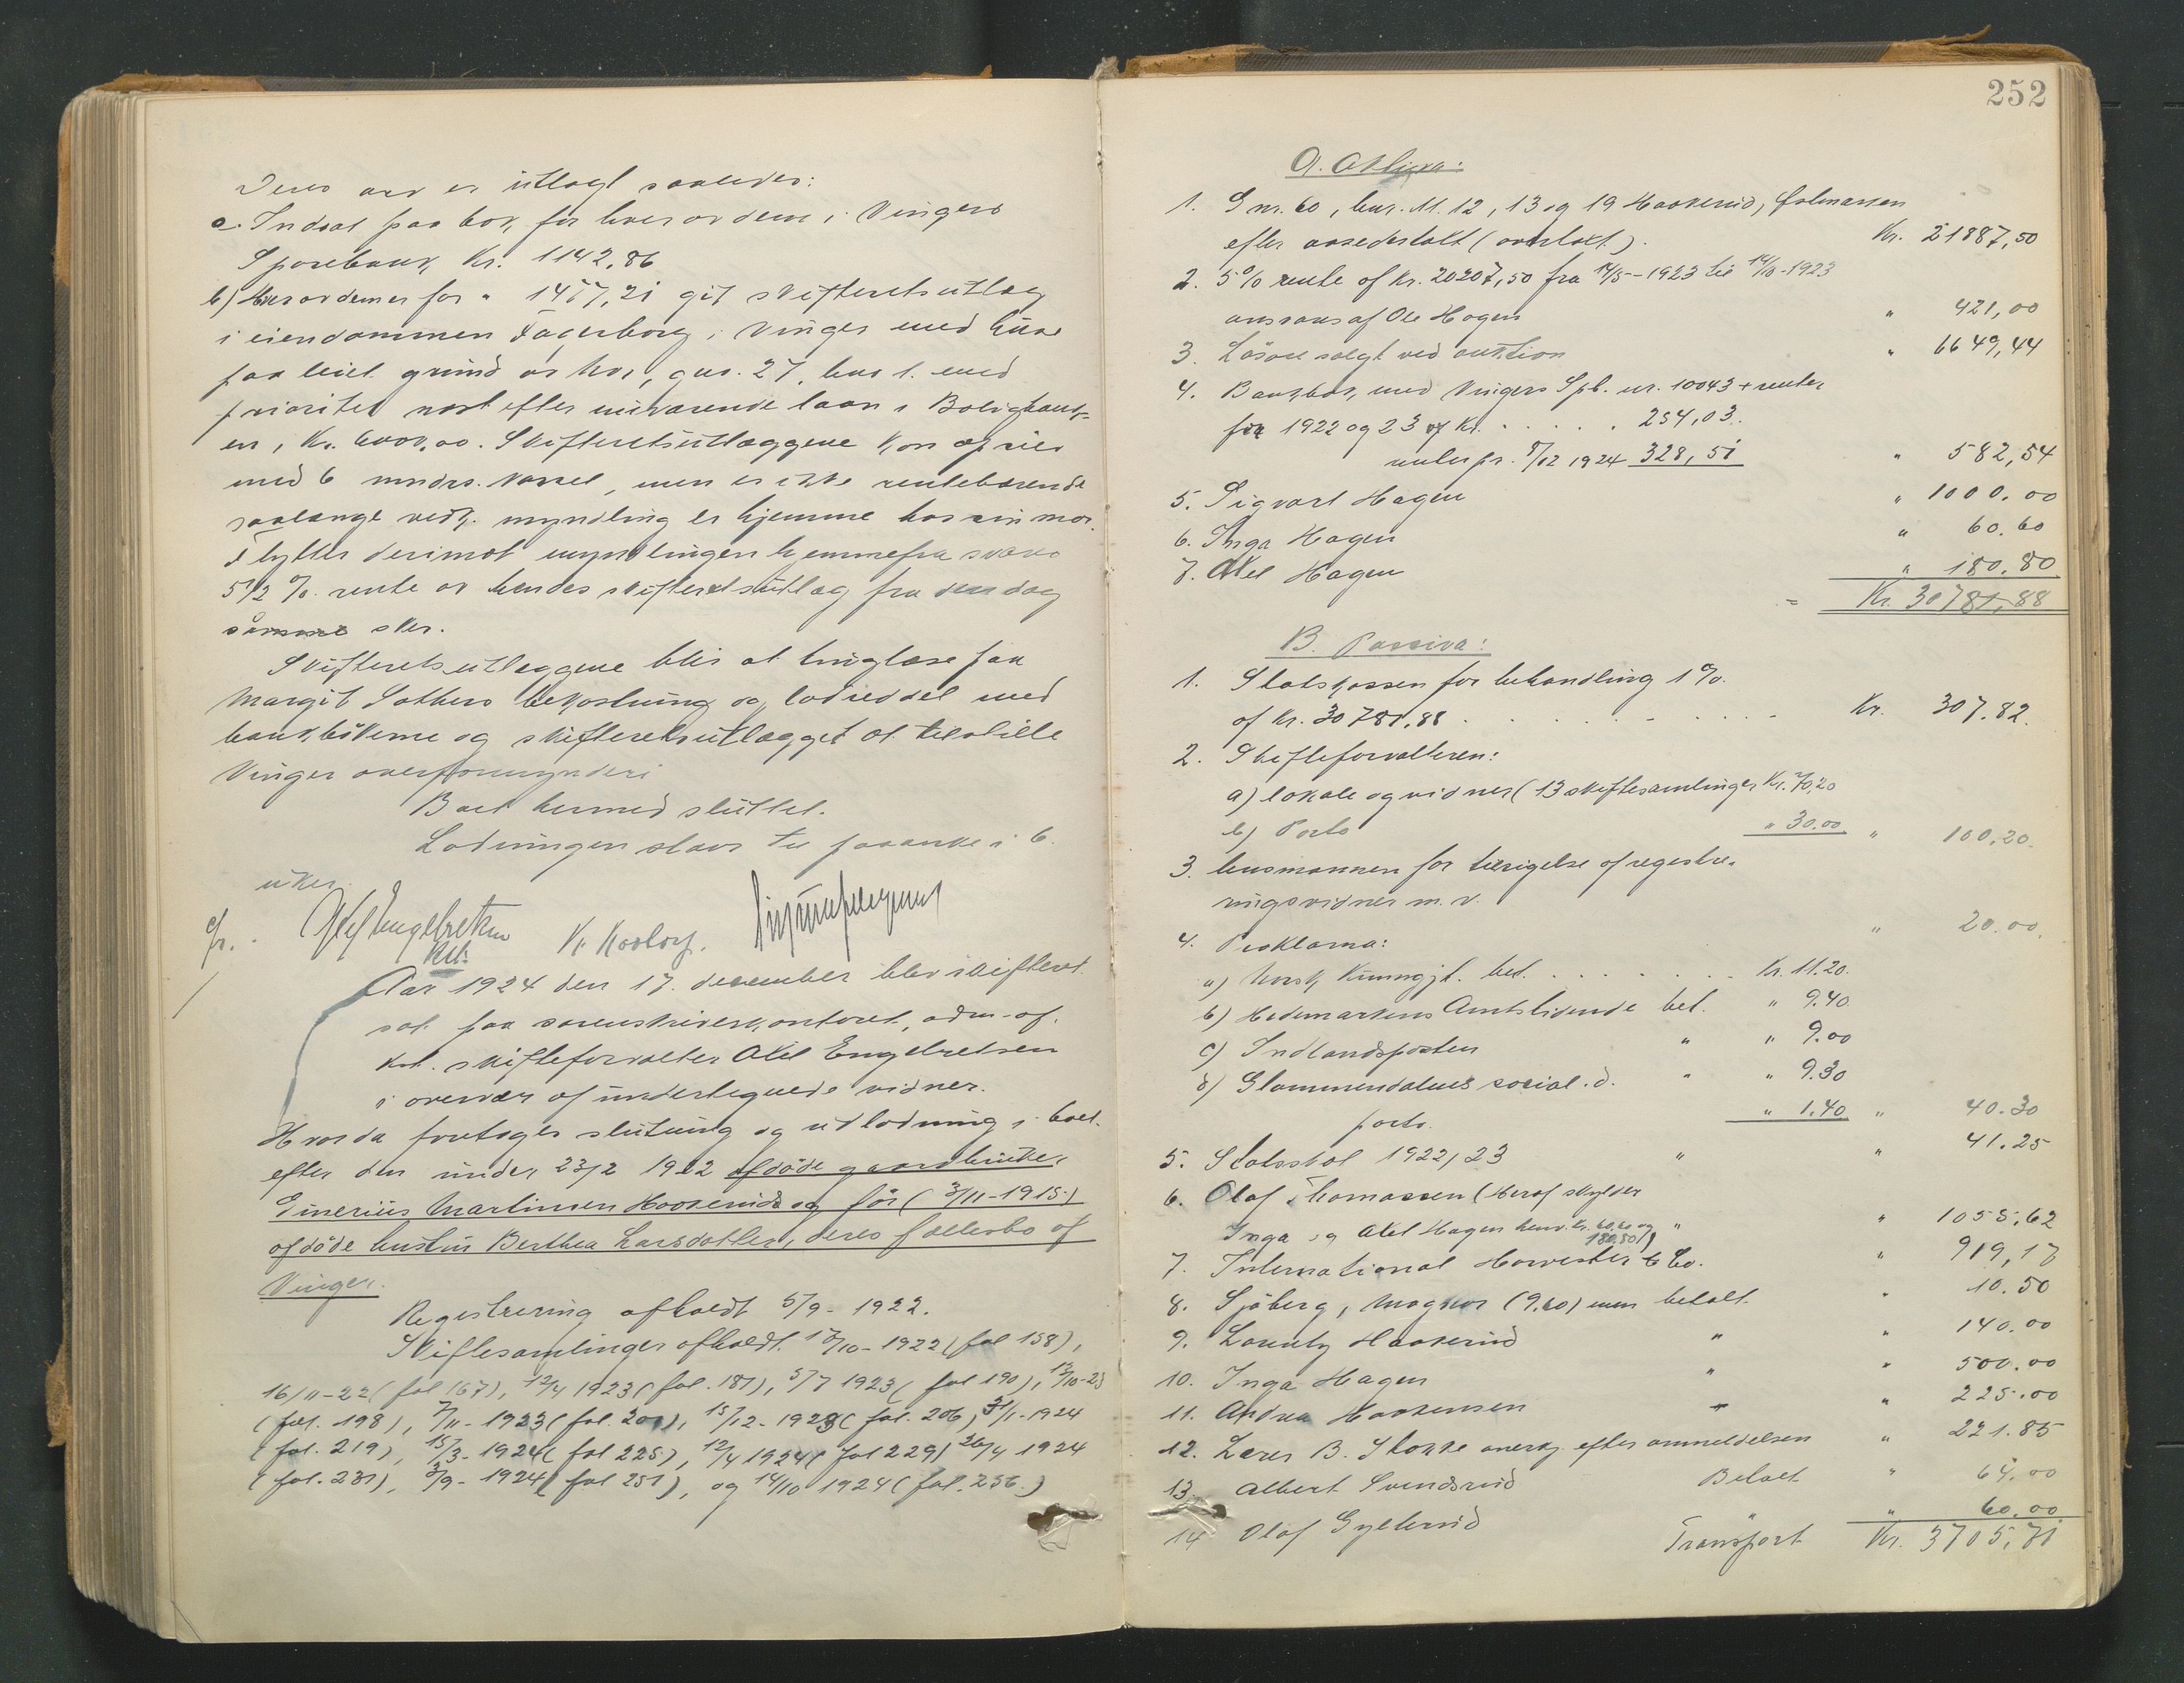 Deres arv er utlagt saaledes:
a. Indsat paa bok for hver av dem i Vingers
Sparebank, Kr. 1142,86
b) Hver av dem er for " 1477,21 git skifteretsutlæg
i eiendommen Fagerborg i Vinger med huse
paa leiet grund av hvs, gnr. 27, bnr 1. med
prioritet næst efter nuværende laan i Boligbank-
en, Kr. 6000,00. Skifteretsutlæggene kan opsies
med 6 mndrs. varsel, men er ikke rentebærende
saalænge vedk. myndling er hjemme hos sin mor.
Flytter derimot myndlingen hjemmefra svares
5 1/2 % rente av hendes skifteretsutlæg fra den dag
samme sker.
Skifteretsutlæggene blir at tinglæse paa
Margit Sætbers bekostning og lodseddel med
bankbökerne og skifteretsutlægget at tilstille
Vinger overformynderi
Boet hermed sluttet.
Lodningen staar til paaanke i 6
uker.
Axel Engebretsen
Kst.
K. Kosberg.
Aar 1924 den 17. december blev skifteret
sat paa sorenskriverkontoret, adm. af
kst. skifteforvalter Axel Engebretsen
i overvær af undertegnede vidner.
Hvorda foretoges slutning og utlodning i boet
efter den under 23/2 1922 afdöde gaardbruker
Sinerius Martinsen Haakerud og för (3/11-1915)
afdöde hustru Berthea Larsdatter, deres fællesbo af
Vinger.
Registrering afholdt 5/9- 1922.
Skiftesamlinger afholdt 13/10- 1922 (fol 158),
16/11-22 (fol 167), 12/4 1923 (fol. 181), 5/7 1923 (fol 190), 13/10-23
(fol. 198), 7/11- 1923 (fol. 201), 15/12- 1923 (fol. 206), 31/1-1924
(fol. 219), 15/3- 1924 (fol 225), 12/4 1924 (fol 229) 26/4 1924
(fol. 231), 3/9- 1924 (fol 251), og 14/10 1924 (fol. 256.)
252
A. Aktiva:
1. Gnr. 60, bnr. 11. 12, 13 og 19 Haakerud, Østmarken
efter aasedestakt (overtakt). Kr. 21887,50
2. 5% rente af Kr. 20207,50 fra 14/5-1923 til 14/10-1923
ansvaras af Ole Hagen " 421,00
3. Lösöre solgt ved auktion " 6649,44
4. Bankbok med Vingers Spb. nr. 10043 + renter
for 1922 og 23 af Kr. . . . . 254,03.
renter pr. 8/12 1924 328,51 " 582,54
5. Sigvart Hagen " 1000.00
6. Inga Hagen " 60.60
7. Axel Hagen " 180.80
= Kr. 30781,88
B. Passiva:
1. Statskassen for behandling 1%.
af Kr. 30781.88 . . . . . . Kr. 307.82.
2. Skifteforvalteren:
a) lokale og vidner (13 skiftesamlinger Kr. 70,20
b) Porto " 30.00 " 100,20.
3. lensmannen for tilsigelse af registre-
ringsvidner m. v. " 20.00.
4. Proklama:
a) Norsk Kunngjt. bet. . . . . . . Kr. 11.20.
b) Hedemarkens Amtstidende bet. " 9.40
c) Indlandsposten " " 9.00
d) Glommendalens social. d. " " 9.30
porto. " 1.40 " 40.30
5. Statsskat 1922/23 " " 41.25
6. Olaf Thomassen (Heraf skylder
Inga og Axel Hagen henv. Kr. 60,60 og 180,80) " " 1055,62
7. International Harvester & Co. " 919,17
8. Sjöberg, Magnor (9.60) men betalt. " 10.50
9. Lorentz Haakerud " " 140.00
10. Inga Hagen " " 500.00
11. Andrea Haakensen " " 225.00
12. Lærer B. Stokke anerkj. efter anmeldelsen " 221.85
13. Albert Svendsrud Betalt " 64,00
14 Olaf Gylterud " " 60.00
Transport Kr. 3705,71